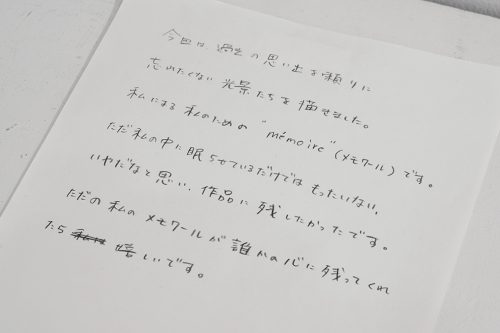 今回は、過去の思い出を頼りに
忘れたくない光景たちを描きました。
私による私のための"mémoire"(メモワール)です。
ただ私の中に眠らせているだけではもったいない、
いやだなと思い、作品に残したかったです。
ただの私のメモワールが誰かの心に残ってくれ
たら嬉しいです。